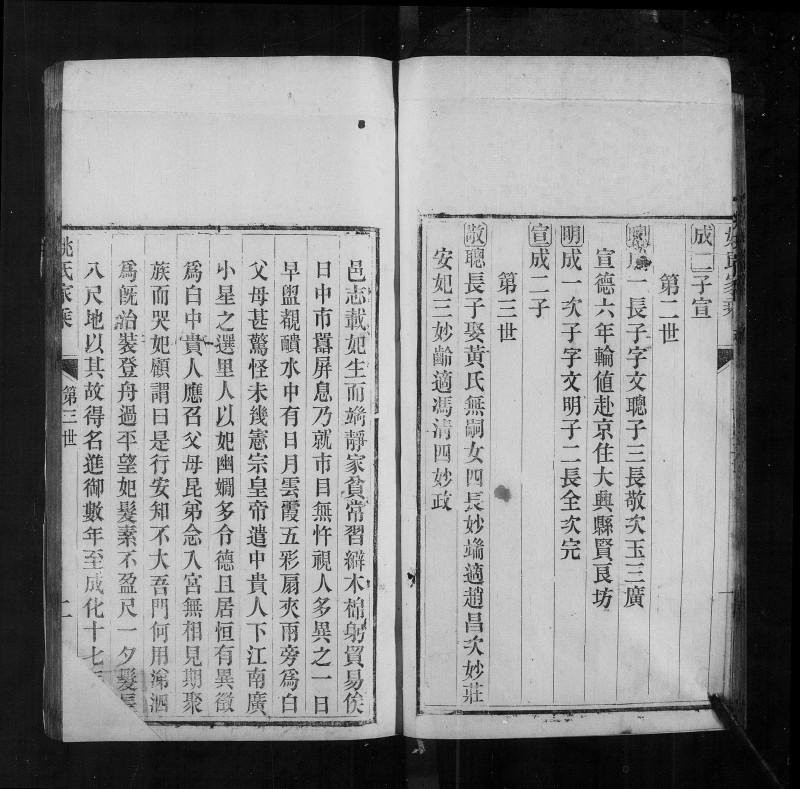 姚氏家乘
成二子宣
第二世
聰一長子字文聰子三長敬次玉三廣
宣德六年輪值赴京住大興縣賢良坊
明成一次子字文明子二長全次完
宣成二子
第三世
敬聰長子娶黃氏無嗣女四長妙端適趙昌次妙莊
安妃三妙齡適馮清四妙政
邑志載妃生而端靜家貧常習辮木棉躬貿易俟
日中市囂屏息乃就市目無忤視人多異之一日
早盥覩靧水中有日月雲霞五彩扇夾兩旁爲白
父母甚驚怪未幾憲宗皇帝遣中貴人下江南廣
小星之選里人以妃幽嫺多令德且居恒有異徵
爲白中貴人應召父母昆弟念入宮無相見期聚
族而哭妃顧謂曰是行安知不大吾門何用涕泗
爲旣治裝登舟過平望妃髮素不盈尺一夕髮長
八尺地以其故得名進御數年至成化十七年
姚氏家乘
第三世
二